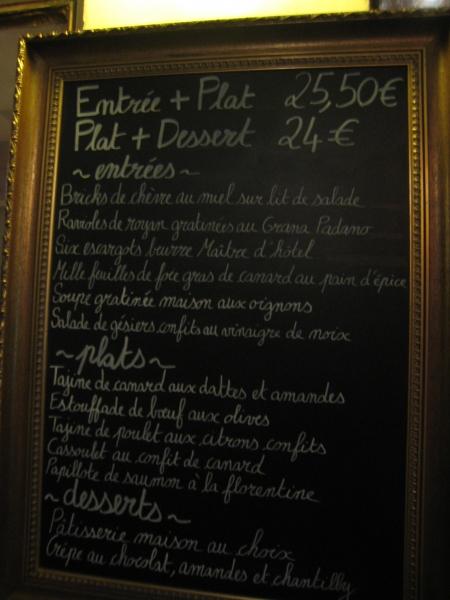 Entrée + Plat 25,50€
Plat + Dessert 24€
~ entrées ~
Bricks de chèvre au miel sur lit de salade
Ravioles de royan gratinées au Grana Padano
Six escargots beurre Maître d'hôtel
Mille feuilles de foie gras de canard au pain d'épice
Soupe gratinée maison aux oignons
Salade de gésiers confits au vinaigre de noix
~ plats ~
Tajine de canard aux dattes et amandes
Estouffade de bœuf aux olives
Tajine de poulet aux citrons confits
Cassoulet au confit de canard
Papillote de saumon à la florentine
~ desserts ~
Pâtisserie maison au choix
Crêpe au chocolat, amandes et chantilly